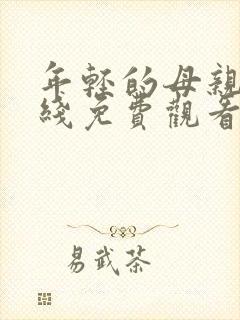 年轻的母親
綫免費觀看
易武茶